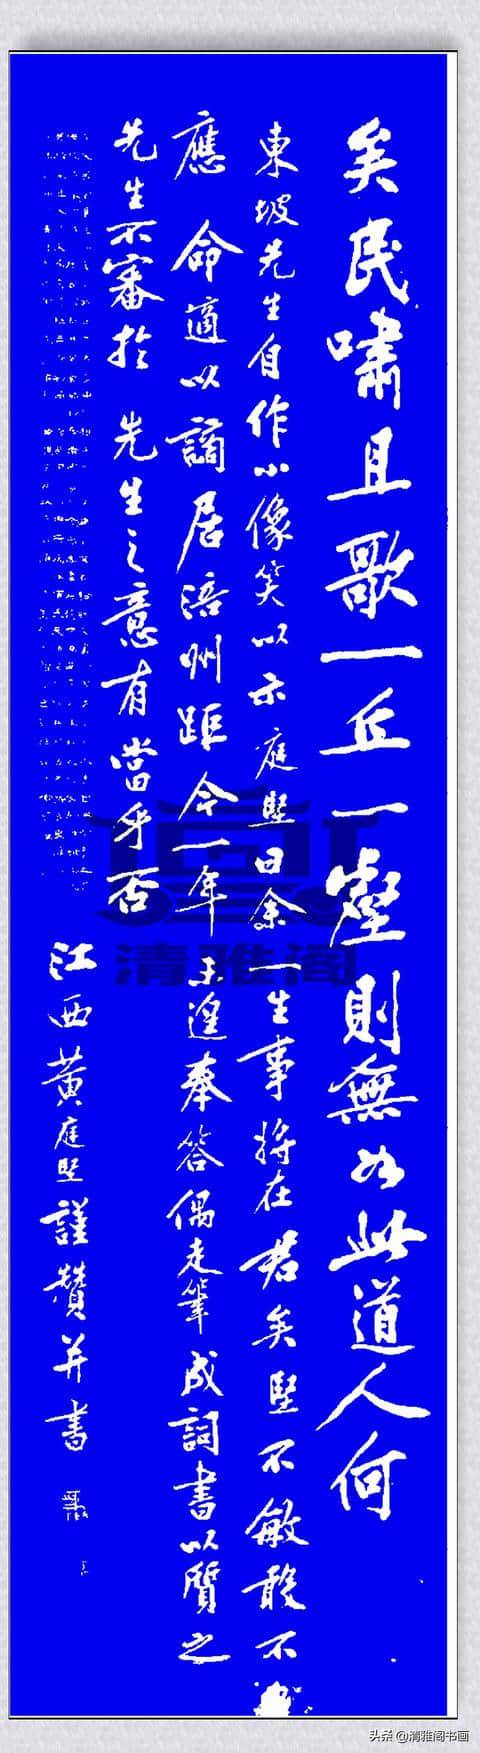 矣民啸且歌一丘一壑則無如此道人何
東坡先生自作小像笑以示庭堅曰余一生事将在君矣堅不敏敢不
應 命適以謫居涪州距今一年未遑奉答偶走筆成詞書以質之
先生不審於 先生之意有當乎否
江西黃庭堅謹贊并書
清雅阁
头条@清雅阁书画